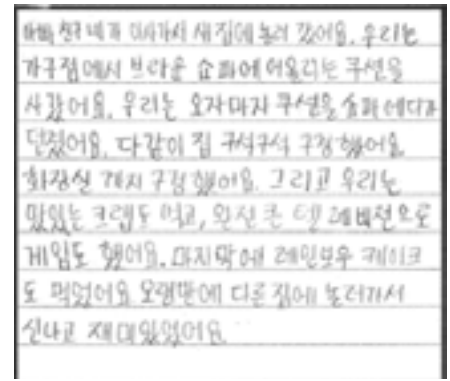 아빠 친구네가 이사가서 새집에 놀러 갔어요. 우리는
가구점에서 브라운 쇼파에 어울리는 쿠션을
사갔어요. 우리는 오자마자 쿠션을 쇼파에다가
던졌어요. 다같이 집 구석구석 구경했어요.
화장실 까지 구경했어요. 그리고 우리는
맛있는 크랩도 먹고, 완전 큰 텔레비전으로
게임도 했어요. 마지막에 레인보우 케이크
도 먹었어요 오랜만에 다른 집에 놀러가서
신나고 재미있었어요.